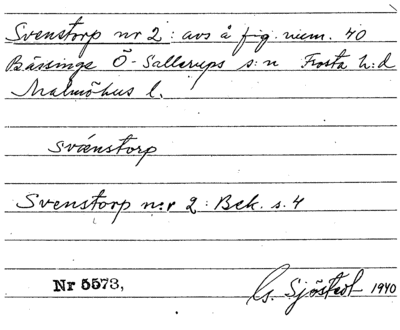 Svenstorp nr 2: avs å fig. num. 40
Bässinge Ö-Sallerups s:n Frosta h:d
Malmöhus l.
svänstorp
Svenstorp n:r 2: Bek. s. 4
Nr 5573,
Gs. Sjöstedt 1940